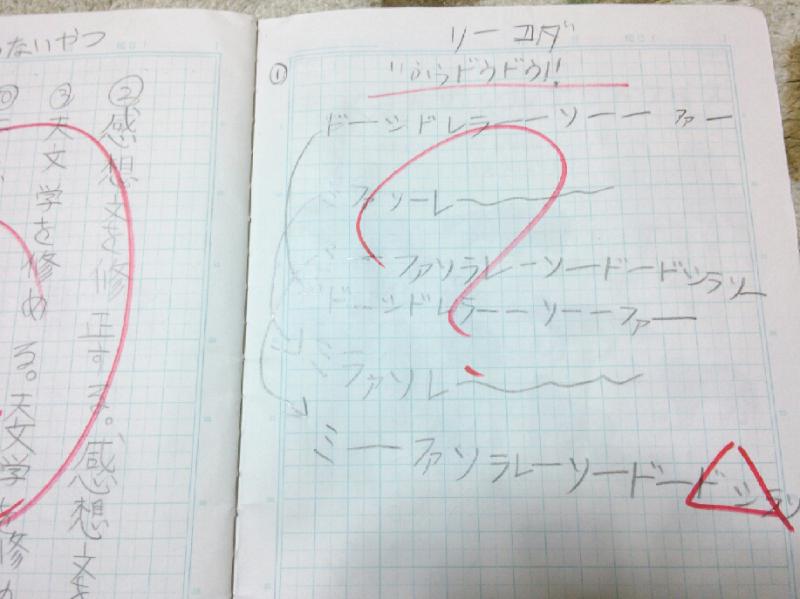 リーコダ
①
ドーシドレラーーソーーファー
ミファソーレ～～
ミーファソラレーソードードシラソー
ドーシドレラーーソーーファー
ミファソレー～～
ミーファソラレーソードードシラソ
ないやつ
②感想文を修正する。感想文を
③天文学を修める。天文学を修め